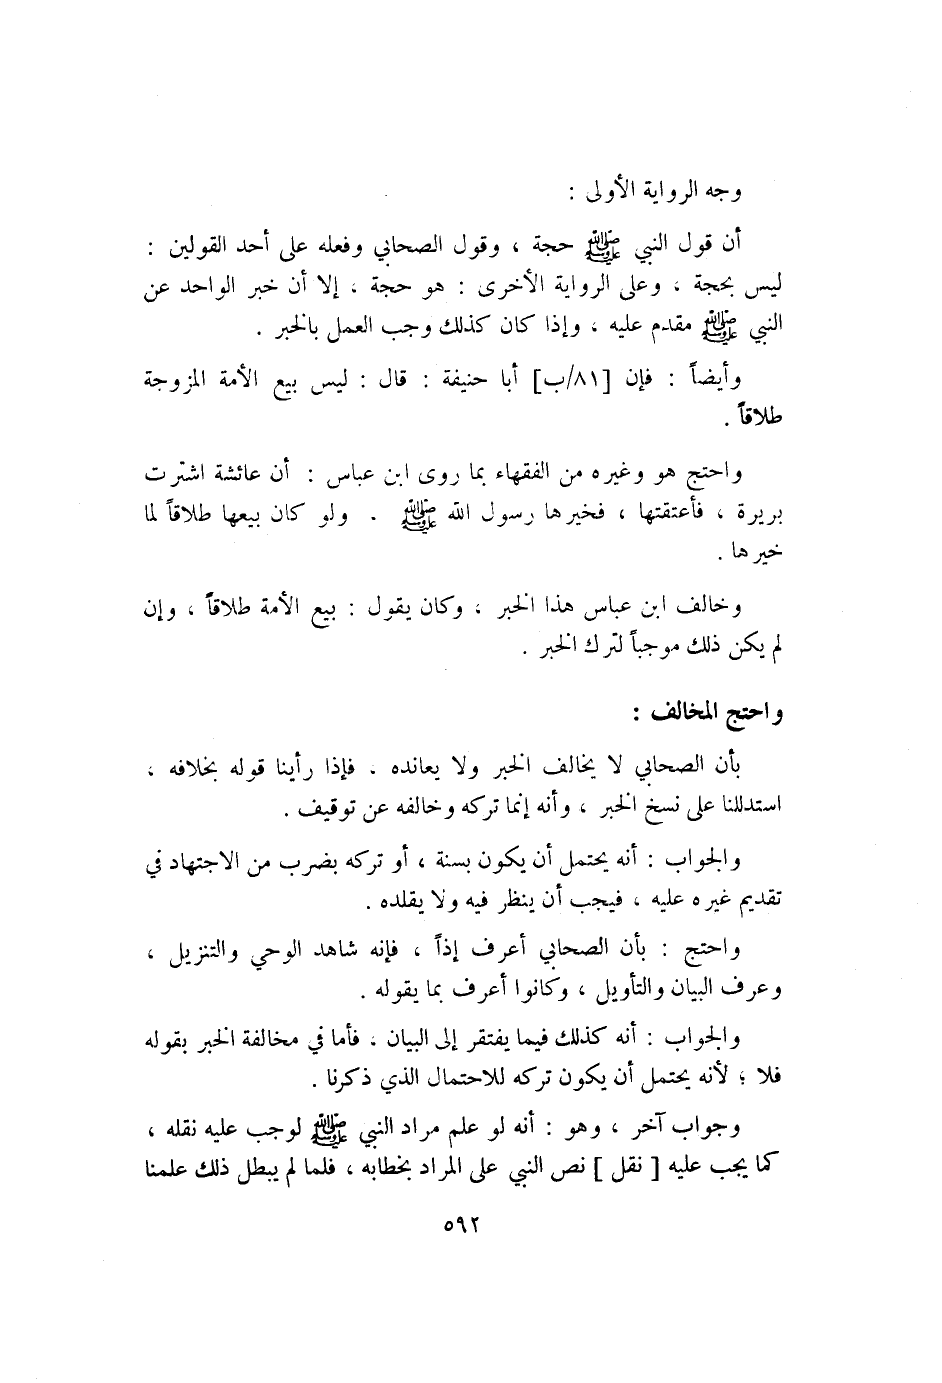 وجه الرواية الأولى :
أن قول النبي ﷺ حجة ، وقول الصحابي وفعله على أحد القولين :
ليس بحجة ، وعلى الرواية الأخرى : هو حجة ، إلا أن خبر الواحد عن
النبي ﷺ مقدم عليه ، وإذا كان كذلك وجب العمل بالخبر .
وأيضاً : فإن [٨١/ب] أبا حنيفة : قال : ليس بيع الأمة المزوجة
طلاقاً .
واحتج هو وغيره من الفقهاء بما روى ابن عباس : أن عائشة اشترت
بريرة ، فأعتقتها ، فخيرها رسول الله ﷺ . ولو كان بيعها طلاقاً لما
خيرها .
وخالف ابن عباس هذا الخبر ، وكان يقول : بيع الأمة طلاقاً ، وإن
لم يكن ذلك موجباً لترك الخبر .
واحتج المخالف :
بأن الصحابي لا يخالف الخبر ولا يعانده . فإذا رأينا قوله بخلافه ،
استدللنا على نسخ الخبر ، وأنه إنما تركه وخالفه عن توقيف .
والجواب : أنه يحتمل أن يكون بسنة ، أو تركه بضرب من الاجتهاد في
تقديم غيره عليه ، فيجب أن ينظر فيه ولا يقلده .
واحتج : بأن الصحابي أعرف إذاً ، فإنه شاهد الوحي والتنزيل ،
وعرف البيان والتأويل ، وكانوا أعرف بما يقوله .
والجواب : أنه كذلك فيما يفتقر إلى البيان ، فأما في مخالفة الخبر بقوله
فلا ؛ لأنه يحتمل أن يكون تركه للاحتمال الذي ذكرنا .
وجواب آخر ، وهو : أنه لو علم مراد النبي ﷺ لوجب عليه نقله ،
كما يجب عليه [ نقل ] نص النبي على المراد بخطابه ، فلما لم يبطل ذلك علمنا
٥٩٢